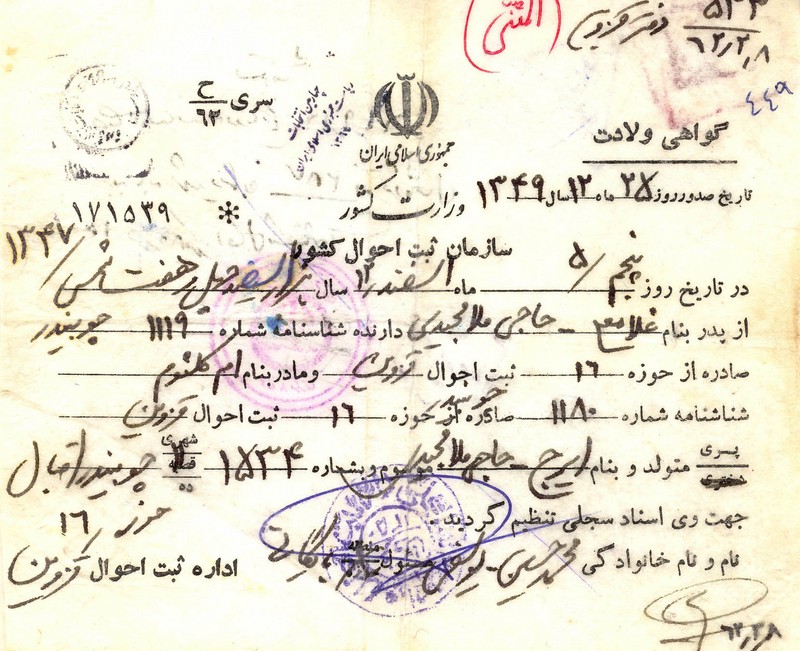 المثنی
دفتر قزوین
۵۴۳
۶۲٫۲٫۸
۴۴۹
سری ح
۶۲
ریاست جمهوری اسلامی ایران
جمهوری اسلامی ایران
گواهی ولادت
تاریخ صدور روز ۲۸ ماه ۱۲ سال ۱۳۴۹
وزارت کشور
* ۱۷۱۵۳۹
سازمان ثبت احوال کشور
در تاریخ روز پنجم / ۵ ماه اسفند ۱۲ سال هزار و سیصد چهل و هفت شمسی / ۱۳۴۷
از پدر بنام غلامعلی - حاجی ملامجیدی دارنده شناسنامه شماره ۱۱۱۹ چوبیندر
صادره از حوزه ۱۶ ثبت احوال قزوین و مادر بنام ام کلثوم
شناشنامه شماره ۱۱۸۰ صادره از حوزه ۱۶ ثبت احوال قزوین
پسری متولد و بنام ایرج - حاجی ملامجیدی موسوم و بشماره ۱۵۳۴ شهری قصبه ده چوبیندر اقبال
دختری
جهت وی اسناد سجلی تنظیم گردید. حوزه / ۱۶
نام و نام خانوادگی محمد حسین
اداره ثبت احوال قزوین
۶۲٫۲٫۸